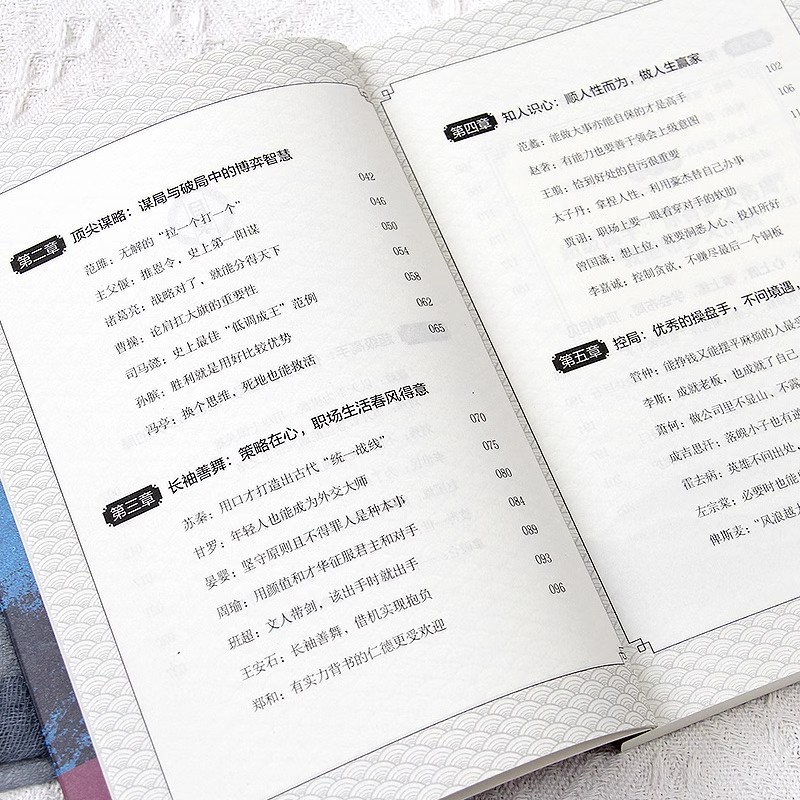 第二章 顶尖谋略：谋局与破局中的博弈智慧
范雎：无解的“拉一个打一个” 042
主父偃：推恩令，史上第一阳谋 046
诸葛亮：战略对了，就能分得天下 050
曹操：论肩扛大旗的重要性 054
司马懿：史上最佳“低调成王”范例 058
孙膑：胜利就是用好比较优势 062
冯亭：换个思维，死地也能救活 065
第三章 长袖善舞：策略在心，职场生活春风得意
苏秦：用口才打造出古代“统一战线” 070
甘罗：年轻人也能成为外交大师 075
晏婴：坚守原则且不得罪人是种本事 080
周瑜：用颜值和才华征服君主和对手 084
班超：文人带剑，该出手时就出手 089
王安石：长袖善舞，借机实现抱负 093
郑和：有实力背书的仁德更受欢迎 096
第四章 知人识心：顺人性而为，做人生赢家
范蠡：能做大事亦能自保的才是高手 102
赵奢：有能力也要善于领会上级意图 106
王翦：恰到好处的自污很重要
太子丹：拿捏人性，利用豪杰替自己办事
贾诩：职场上要一眼看穿对手的软肋
曾国藩：想上位，就要洞悉人心、投其所好
李嘉诚：控制贪欲，不赚尽最后一个铜板
第五章 控局：优秀的操盘手，不问境遇，
管仲：能挣钱又能摆平麻烦的人最
李斯：成就老板，也成就了自己
萧何：做公司里不显山、不露
成吉思汗：落魄小子也有逆
霍去病：英雄不问出处，
左宗棠：必要时也能
俾斯麦：“风浪越